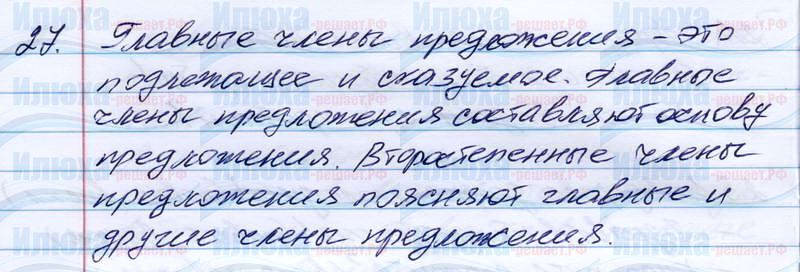 27. Главные члены предложения - это
подлежащее и сказуемое. Главные
члены предложения составляют основу
предложения. Второстепенные члены
предложения поясняют главные и
другие члены предложения.
Илюха-решает.РФ